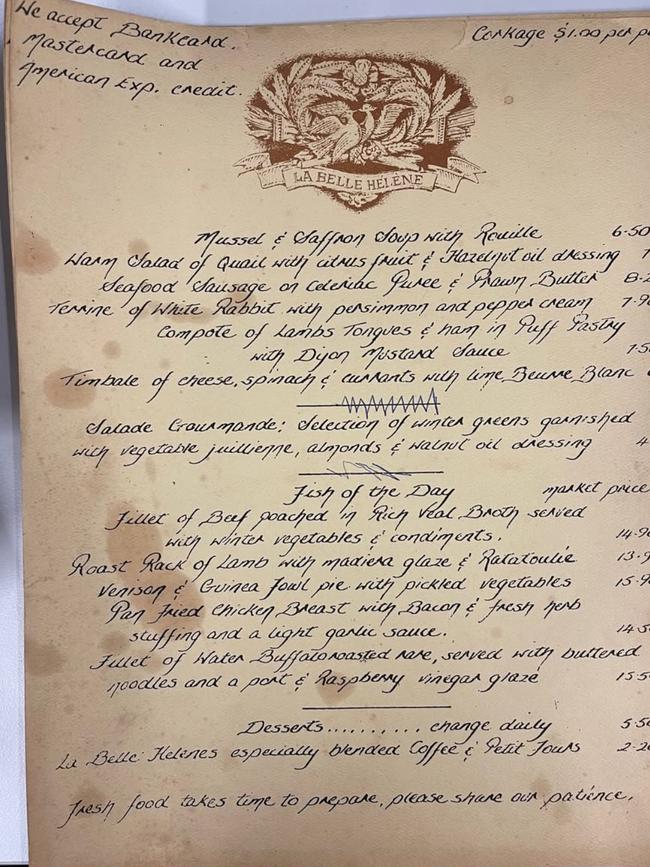 We accept Bankcard.
Mastercard and
American Exp. credit.
Corkage $1.00 per p
LA BELLE HELENE
Mussel & Saffron Soup with Rouille 6.50
Warm Salad of Quail with citrus fruit & Hazelnut oil dressing 7
Seafood Sausage on Celeriac Puree & Prawn Butter 8.2
Terrine of White Rabbit with persimmon and pepper cream 7.9
Compote of Lambs Tongues & ham in Puff Pastry
with Dijon Mustard Sauce 7.5
Timbale of cheese, spinach & currants with lime Beurre Blanc
Salade Gourmande: Selection of winter greens garnished
with vegetable juillienne, almonds & walnut oil dressing 4
Fish of the Day market price
Fillet of Beef poached in Rich Veal Broth served
with winter vegetables & condiments. 14.9
Roast Rack of Lamb with madiera glaze & Ratatoulie 13.9
Venison & Guinea Fowl pie with pickled vegetables 15.9
Pan Fried Chicken Breast with Bacon & fresh herb
stuffing and a light garlic sauce. 14.5
Fillet of Water Buffalo roasted rare, served with buttered
noodles and a port & Raspberry vinegar glaze 15.5
Desserts.......... change daily 5.50
La Belle Helenes especially blended Coffee & Petit Fours 2.20
Fresh food takes time to prepare, please share our patience.